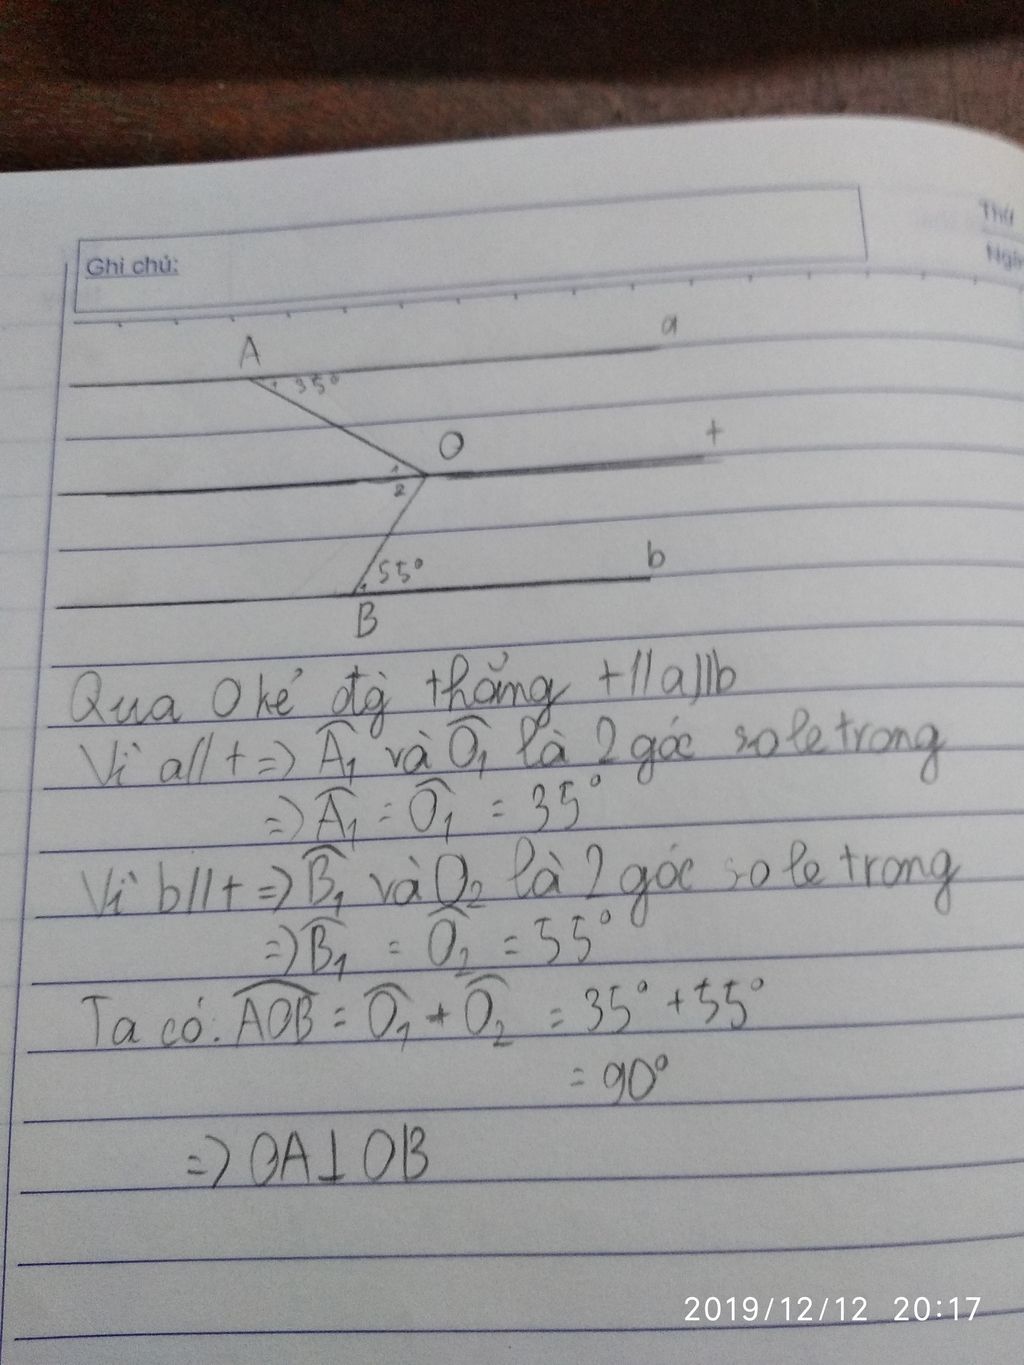 Thứ
Ghi chú:
A
a
35°
O
t
1
2
55°
b
B
Qua O kẻ đg thẳng t//a//b
Vì a//t => A₁ và O₁ là 2 góc so le trong
=> A₁ = O₁ = 35°
Vì b//t => B₁ và O₂ là 2 góc so le trong
=> B₁ = O₂ = 55°
Ta có: AOB = O₁ + O₂ = 35° + 55°
= 90°
=> OA⊥OB
2019/12/12 20:17